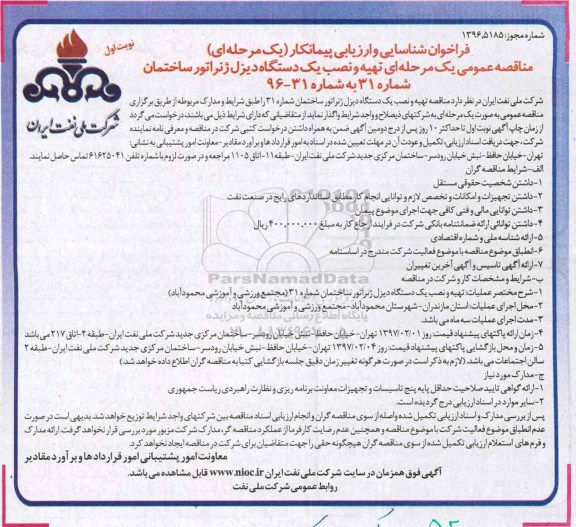 شماره مجوز: ۱۳۹۶.۵۱۸۵
نوبت اول
فراخوان شناسایی و ارزیابی پیمانکار (یک مرحله‌ای)
مناقصه عمومی یک مرحله‌ای تهیه و نصب یک دستگاه دیزل ژنراتور ساختمان
شماره ۳۱ به شماره ۳۱-۹۶
شرکت ملی نفت ایران
شرکت ملی نفت ایران در نظر دارد مناقصه تهیه و نصب یک دستگاه دیزل ژنراتور ساختمان شماره ۳۱ را طبق شرایط و مدارک مربوطه از طریق برگزاری
مناقصه عمومی به صورت یک مرحله‌ای به شرکتهای ذیصلاح و واجد شرایط واگذار نماید از متقاضیانی که دارای شرایط ذیل می باشند، درخواست می گردد
از زمان چاپ آگهی نوبت اول تا حداکثر ۱۰ روز پس از درج دومین آگهی ضمن به همراه داشتن درخواست کتبی شرکت در مناقصه و معرفی نامه نماینده
شرکت، جهت دریافت اسناد ارزیابی، تکمیل و عودت آن در مهلت تعیین شده در اسناد به امور قراردادها و برآورد مقادیر-معاونت امور پشتیبانی به نشانی:
تهران-خیابان حافظ-نبش خیابان رودسر-ساختمان مرکزی جدید شرکت ملی نفت ایران-طبقه ۱۱-اتاق ۱۱۰۵ مراجعه و در صورت لزوم با شماره تلفن ۶۱۶۲۵۰۴۱ تماس حاصل نمایند.
الف-شرایط مناقصه گران
۱-داشتن شخصیت حقوقی مستقل
۲-داشتن تجهیزات و امکانات و تخصص لازم و توانایی انجام کار مطابق استانداردهای رایج در صنعت نفت
۳-داشتن توانایی مالی و فنی کافی جهت اجرای موضوع پیمان
۴-داشتن توانائی ارائه ضمانتنامه بانکی شرکت در فرایند ارجاع کار به مبلغ ۴۰۰,۰۰۰,۰۰۰ ریال
۵-ارائه شناسه ملی و شماره اقتصادی
۶-انطباق موضوع مناقصه با موضوع فعالیت شرکت مندرج در اساسنامه
۷-ارائه آگهی تاسیس و آگهی آخرین تغییرات
ب-شرایط و مشخصات کار و شرکت در مناقصه
۱-شرح مختصر عملیات: تهیه و نصب یک دستگاه دیزل ژنراتور ساختمان شماره ۳۱ (مجتمع ورزشی و آموزشی محمودآباد)
۲-محل اجرای عملیات: استان مازندران-شهرستان محمودآباد-مجتمع ورزشی و آموزشی محمودآباد
۳-مدت اجرای عملیات سه ماه می باشد.
۴-زمان ارائه پاکتهای پیشنهاد قیمت: روز ۱۳۹۷/۰۲/۰۱ تهران-خیابان حافظ-نبش خیابان رودسر-ساختمان مرکزی جدید شرکت ملی نفت ایران-طبقه ۲-اتاق ۲۱۷ می باشد
۵-زمان و محل بازگشایی پاکتهای پیشنهاد قیمت: روز ۱۳۹۷/۰۲/۰۴ تهران-خیابان حافظ-نبش خیابان رودسر-ساختمان مرکزی جدید شرکت ملی نفت ایران-طبقه ۲
سالن اجتماعات می باشد. (لازم به ذکر است در صورت هر گونه تغییر زمان دقیق جلسه بازگشایی کتبا به مناقصه گران اطلاع داده خواهد شد)
ج-مدارک مورد نیاز
۱-ارائه گواهی تایید صلاحیت حداقل پایه پنج تاسیسات و تجهیزات معاونت برنامه ریزی و نظارت راهبردی ریاست جمهوری
۲-سایر موارد در اسناد ارزیابی درج گردیده است.
پس از بررسی مدارک و اسناد ارزیابی تکمیل شده واصله از سوی مناقصه گران و انجام ارزیابی اسناد مناقصه بین شرکتهای واجد شرایط توزیع خواهد شد. بدیهی است در صورت
عدم انطباق موضوع فعالیت شرکت با موضوع مناقصه و همچنین عدم رضایت کارفرما از عملکرد مناقصه گر، مدارک شرکت مزبور مورد بررسی قرار نخواهد گرفت. ارائه مدارک
و فرم های استعلام ارزیابی تکمیل شده از سوی مناقصه گران هیچگونه حقی را جهت متقاضیان برای شرکت در مناقصه ایجاد نخواهد کرد.
معاونت امور پشتیبانی امور قراردادها و برآورد مقادیر
آگهی فوق همزمان در سایت شرکت ملی نفت ایران www.nioc.ir قابل مشاهده می باشد.
روابط عمومی شرکت ملی نفت
ParsNamadData